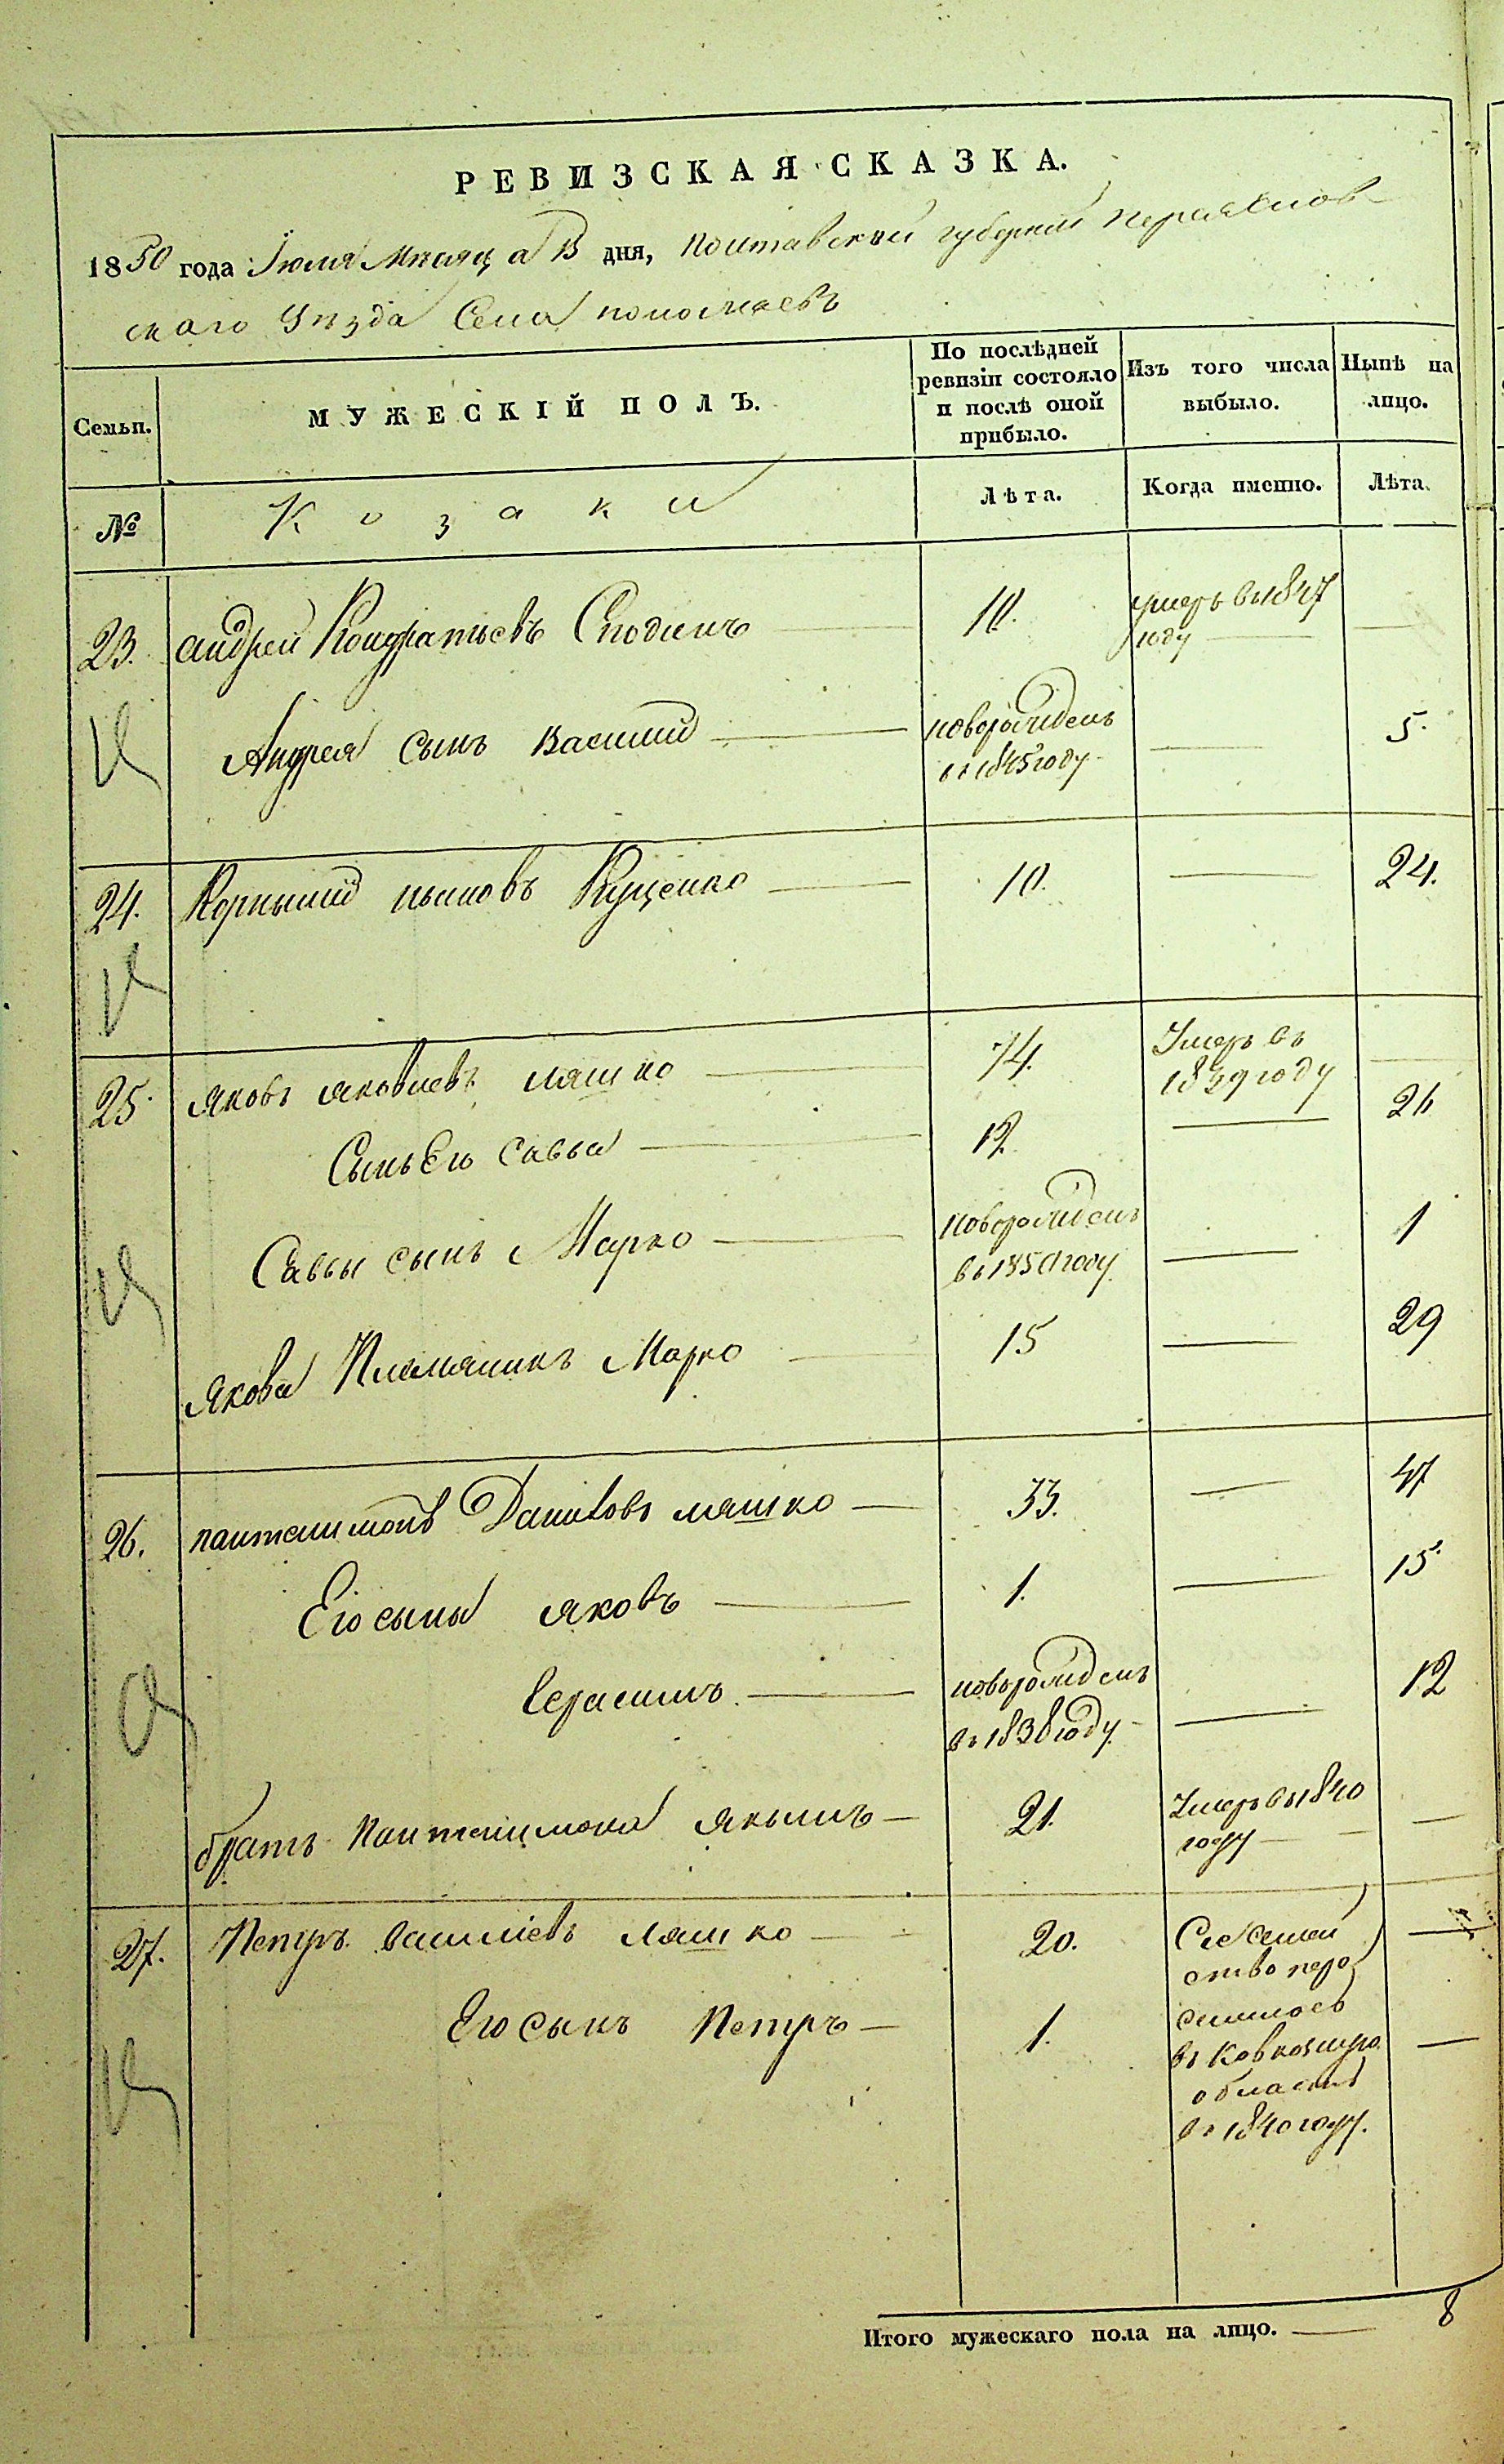 РЕВИЗСКАЯ СКАЗКА.
1850 года Іюля Мѣсяца дня, Полтавской губерніи Переяслов-
скаго Уѣзда Села
Семьи. МУЖЕСКІЙ ПОЛЪ. По послѣдней ревизіи состояло и послѣ оной прибыло. Изъ того числа выбыло. Нынѣ на лицо.
№ Козаки Лѣта. Когда именно. Лѣта.
23. Андрей Кондратьевъ 10. умеръ въ 1847 году —
Андрея сынъ Василий — новорожденъ въ 1845 году — 5.
24. Корнылий Кущенко — 10. — 24.
25. Яковъ Яковлевъ Ляшко — 74. Умеръ въ 1839 году —
Сынъ Его Савва — 12. — 26
Саввы сынъ Марко — новорожденъ въ 1850 году — 1
Якова Племянникъ Марко — 15 — 29
26. Пантелимонъ Даниловъ Ляшко — 33. — 47
Его сыны Яковъ — 1. — 15.
Герасимъ. — новорожденъ въ 1838 году — 12
братъ Пантелимона Якымъ — 21. Умеръ въ 1840 году — —
27. Петръ Василіевъ Ляшко — 20. Сие семей
ство пере
селилось
Его сынъ Петръ — 1. въ —
области
въ 1840 году.
Итого мужескаго пола на лицо. — 8